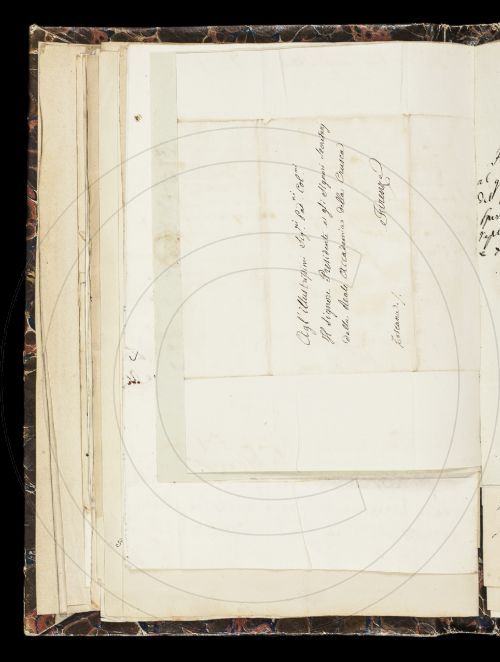 Agl'illustrissimi Sig.ri Pad.ni Col.mi
Il Signore Presidente e gli Signori
della Reale Accademia della Crusca
Firenze
Toscana